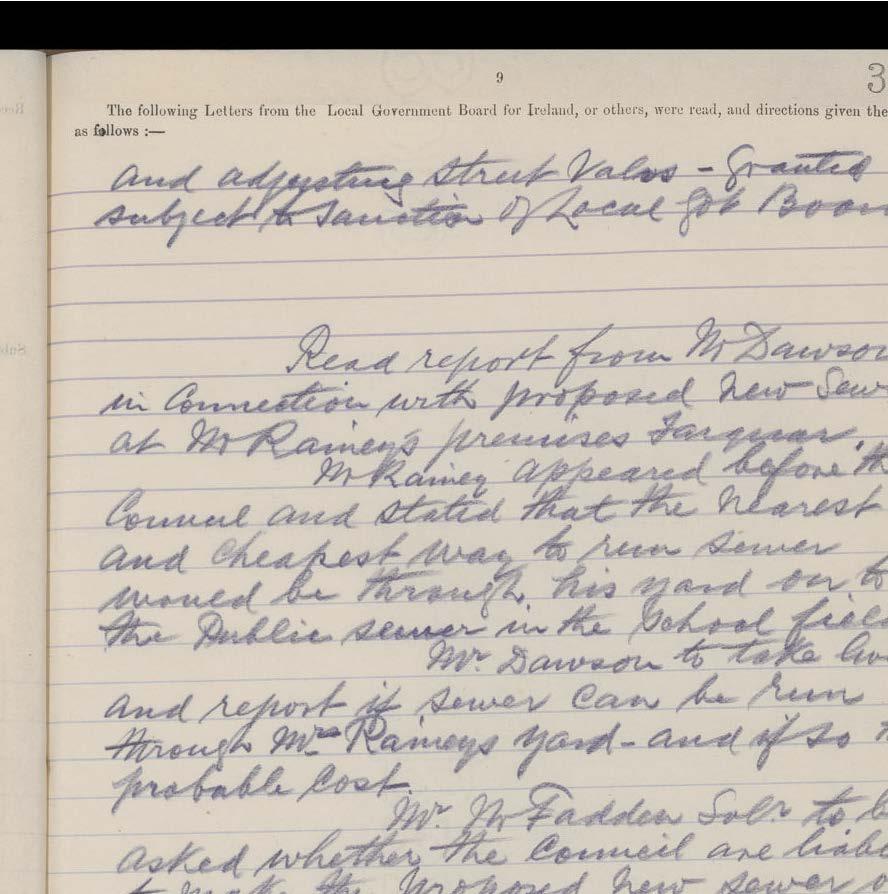 9
3
The following Letters from the Local Government Board for Ireland, or others, were read, and directions given the
as follows :—
and adjusting Street Valves - Granted
subject to Sanction of Local Gov Boar
Read report from Mr Dawson
in Connection with proposed New Sew
at Mr Rainey's premises
Mr Rainey appeared before th
Council and stated that the nearest
and cheapest way to run sewer
would be through his yard on to
the Public sewer in the School field
Mr. Dawson to take
and report if sewer can be run
through Mrs Raineys yard - and if so
probable Cost.
Mr. McFadden Solr. to b
asked whether the Council are liabl
to make the proposed new sewer